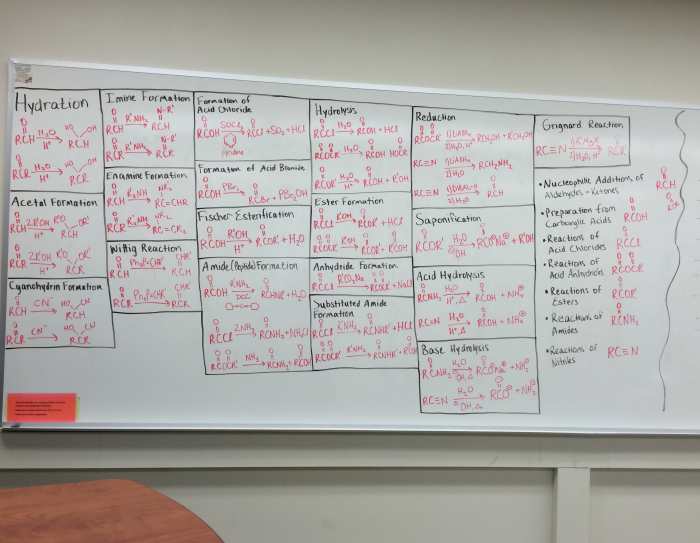 Hydration
H₂O
RCH
RCH
H₂O
RCR
RCR
Acetal Formation
RCH
2R'OH
H⁺
RCH
RCR
2R'OH
H⁺
RCR
Cyanohydrin Formation
RCH
CN⁻
RCH
RCR
CN⁻
RCR
Imine Formation
RCH
R'NH₂
N-R'
RCH
RCR
R'NH₂
N-R'
RCR
Enamine Formation
R₂NH
RC=CHR
R₂NH
Wittig Reaction
RCH
RCR
Formation of
Acid Chloride
RCOH
SOCl₂
Pyridine
RCCl + SO₂ + HCl
Formation of Acid Bromide
RCOH
PBr₃
RCBr + PBr₂OH
Fischer Esterification
RCOH
R'OH
H⁺
RCOR' + H₂O
Amide (Peptide) Formation
RCOH
R'NH₂
DCC
RCHNR' + H₂O
RCCl
2NH₃
RCNH₂ + NH₄Cl
RCOCR
NH₃
RCNH₂ + RCOH
Hydrolysis
RCCl
H₂O
RCOH + HCl
RCOCR
H₂O
RCOH HOCR
RCOR'
H₂O
H⁺
RCOH + R'OH
Ester Formation
RCCl
R'OH
RCOR' + HCl
RCOCR
R'OH
RCOR' + RCOH
Anhydride Formation
RCCl
RCO₂Na
RCOCR + NaCl
Substituted Amide
Formation
RCCl
R'NH₂
RCNHR' + HCl
RCOCR
R'NH₂
RCNHR' + RCOH
Reduction
RCOCR
1) LiAlH₄
2) H₂O
RCH₂OH + RCH₂OH
RC≡N
1) LiAlH₄
2) H₂O
RCH₂NH₂
RC≡N
1) DIBAL-H
2) H₂O
RCH
Saponification
RCOR'
H₂O
OH
RCO⁻Na⁺ + R'OH
Acid Hydrolysis
RCNH₂
H₂O
H⁺, Δ
RCOH + NH₄⁺
RC≡N
H₂O
H⁺, Δ
RCOH + NH₄⁺
Base Hydrolysis
RCNH₂
H₂O
OH, Δ
RC≡N
H₂O
OH, Δ
Grignard Reaction
RC≡N
2) H₂O, H⁺
RCR
• Nucleophilic Additions of
Aldehydes + Ketones
RCH
RCR
• Preparation from
Carboxylic Acids
RCOH
• Reactions of
Acid Chlorides
RCCl
• Reactions of
Acid Anhydrides
RCOCR
• Reactions of
Esters
RCOR'
• Reactions of
Amides
RCNH₂
• Reactions of
Nitriles
RC≡N